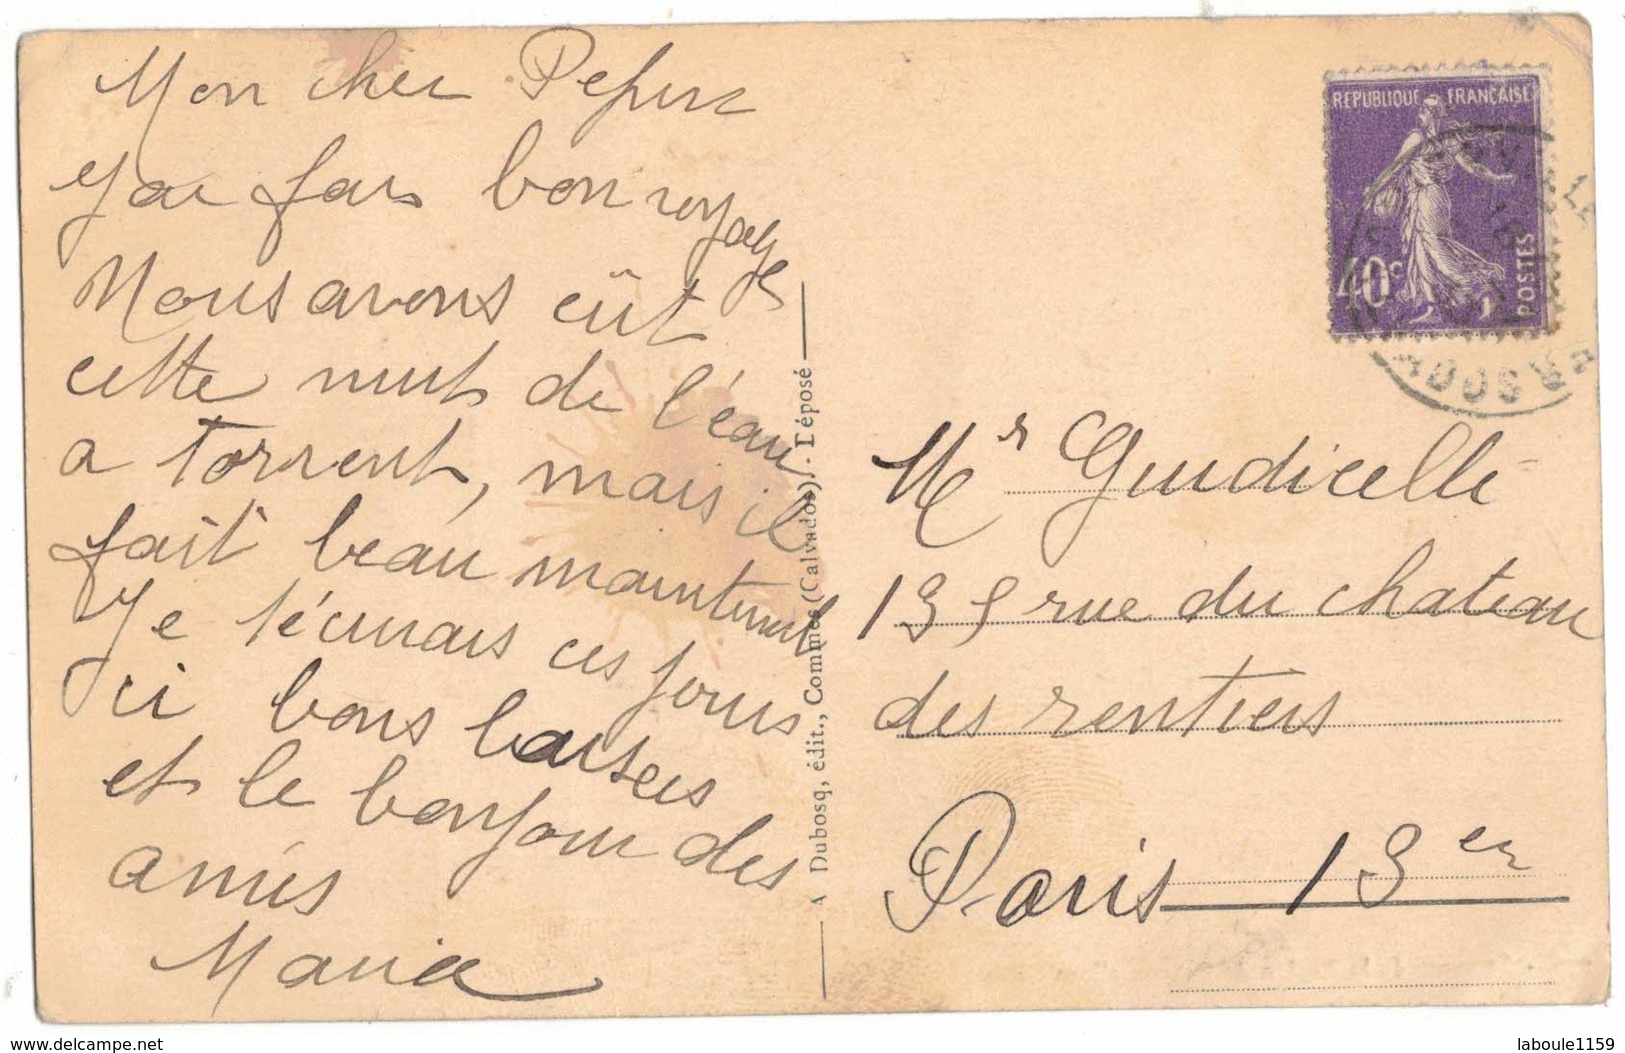 Mon cher Pepin
J'ai fais bon voyage
Nous avons eût
cette nuit de l'éau
a torrent, mais il
fait beau maintenent
Je t'écurais ces jours
ci bons baisers
et le bonjour des
amies
Maria
A Dubosq, édit., Commes (Calvados). - Déposé
REPUBLIQUE FRANÇAISE
40c
POSTES
Mr Guidicelli
135 rue du chateau
des rentiers
Paris 13er
www.delcampe.net
laboule1159